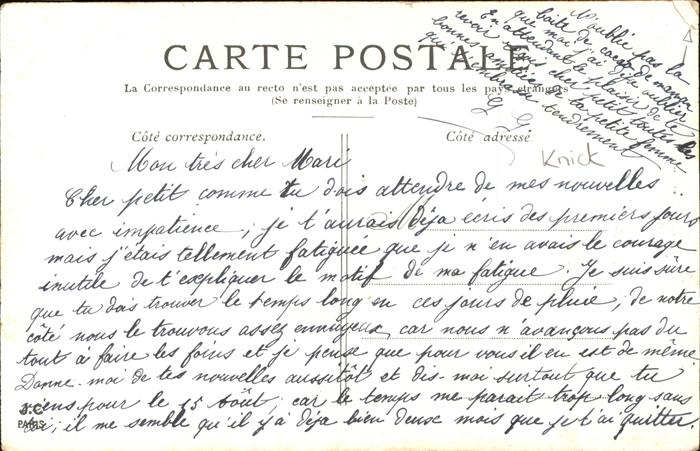 CARTE POSTALE
La Correspondance au recto n'est pas acceptée par tous les pays étrangers
(Se renseigner à la Poste)
Côté correspondance.
Côté adresse
Knick
Mon très cher Mari
Cher petit comme tu dois attendre de mes nouvelles
avec impatience, je t'aurais déja écris des premiers jours
mais j'étais tellement fatiguée que je n'en avais le courage
inutile de t'expliquer le motif de ma fatigue. Je suis sûre
que tu dois trouver le temps long en ces jours de pluie, de notre
côté nous le trouvons assez ennuyeux, car nous n'avançons pas du
tout à faire les foins et je pense que pour vous il en est de même
Donne-moi de tes nouvelles aussitôt et dis-moi surtout que tu
viens pour le 15 Août, car le temps me parait trop long sans
toi; il me semble qu'il y a déja bien deux mois que je t'ai quitter.
N'oublie pas la
boîte de cacao de maman
que moi j'ai déja oublier
En attendant le plaisir de te
revoir reçois cher petit toutes les
bonnes amitiés de ta petite femme
qui t'embrasse tendrement
G G
J.C
PARIS